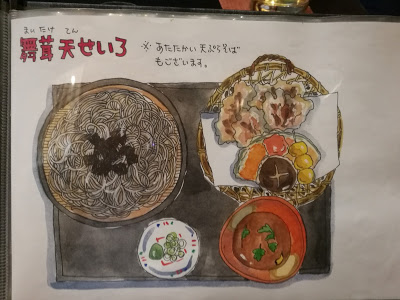 まいたけ てん
舞茸天せいろ
※ あたたかい天ぷらそば
もございます。